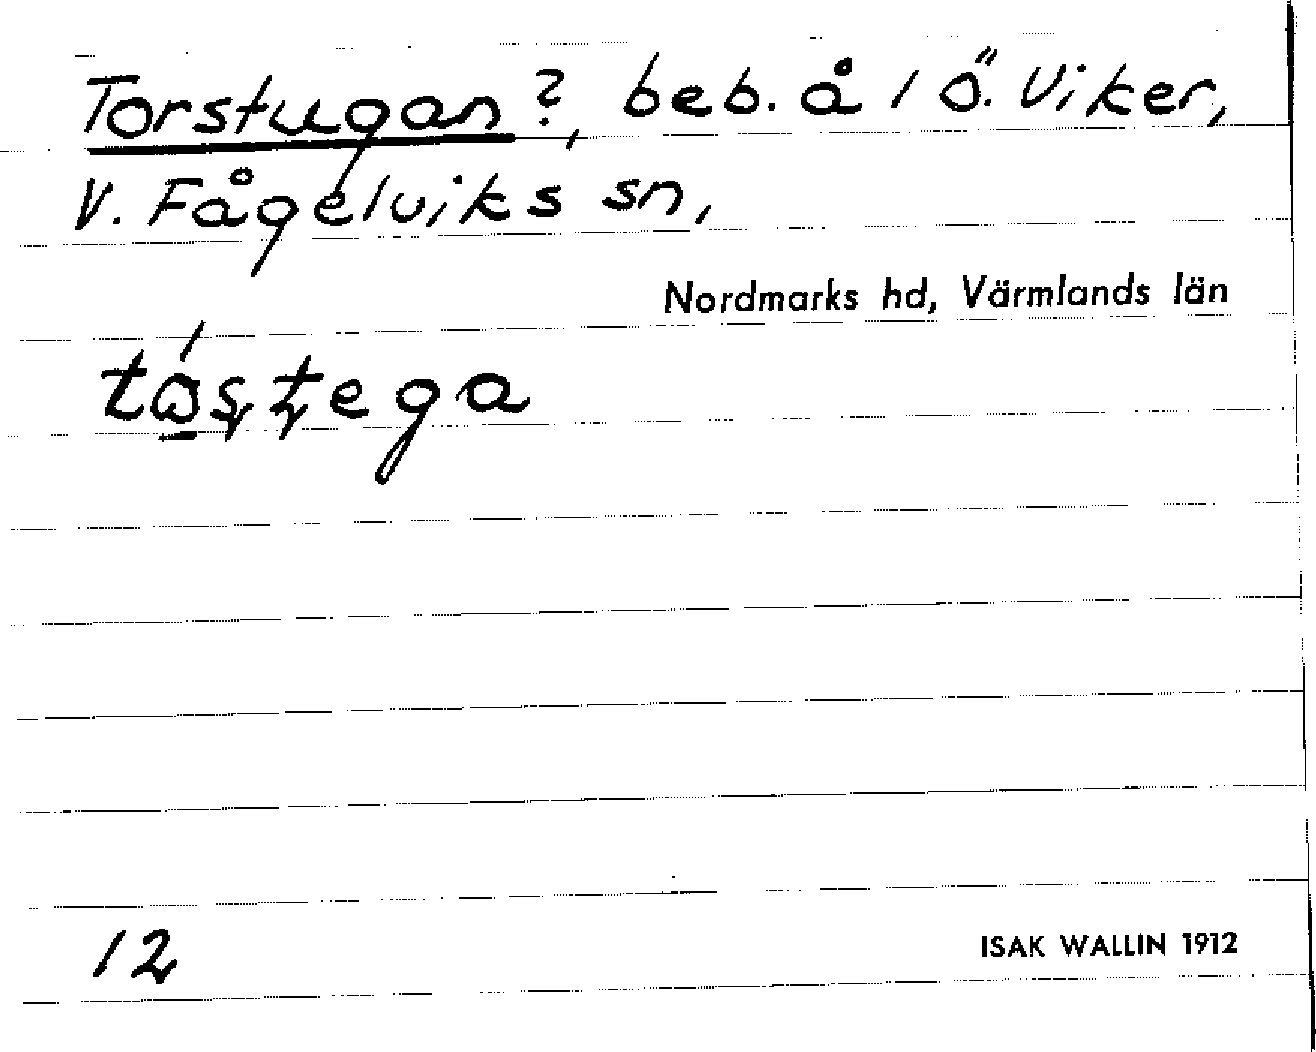 Torstugan?, beb. å 1 Ö. Viker,
V. Fågelviks sn,
Nordmarks hd, Värmlands län
12
ISAK WALLIN 1912